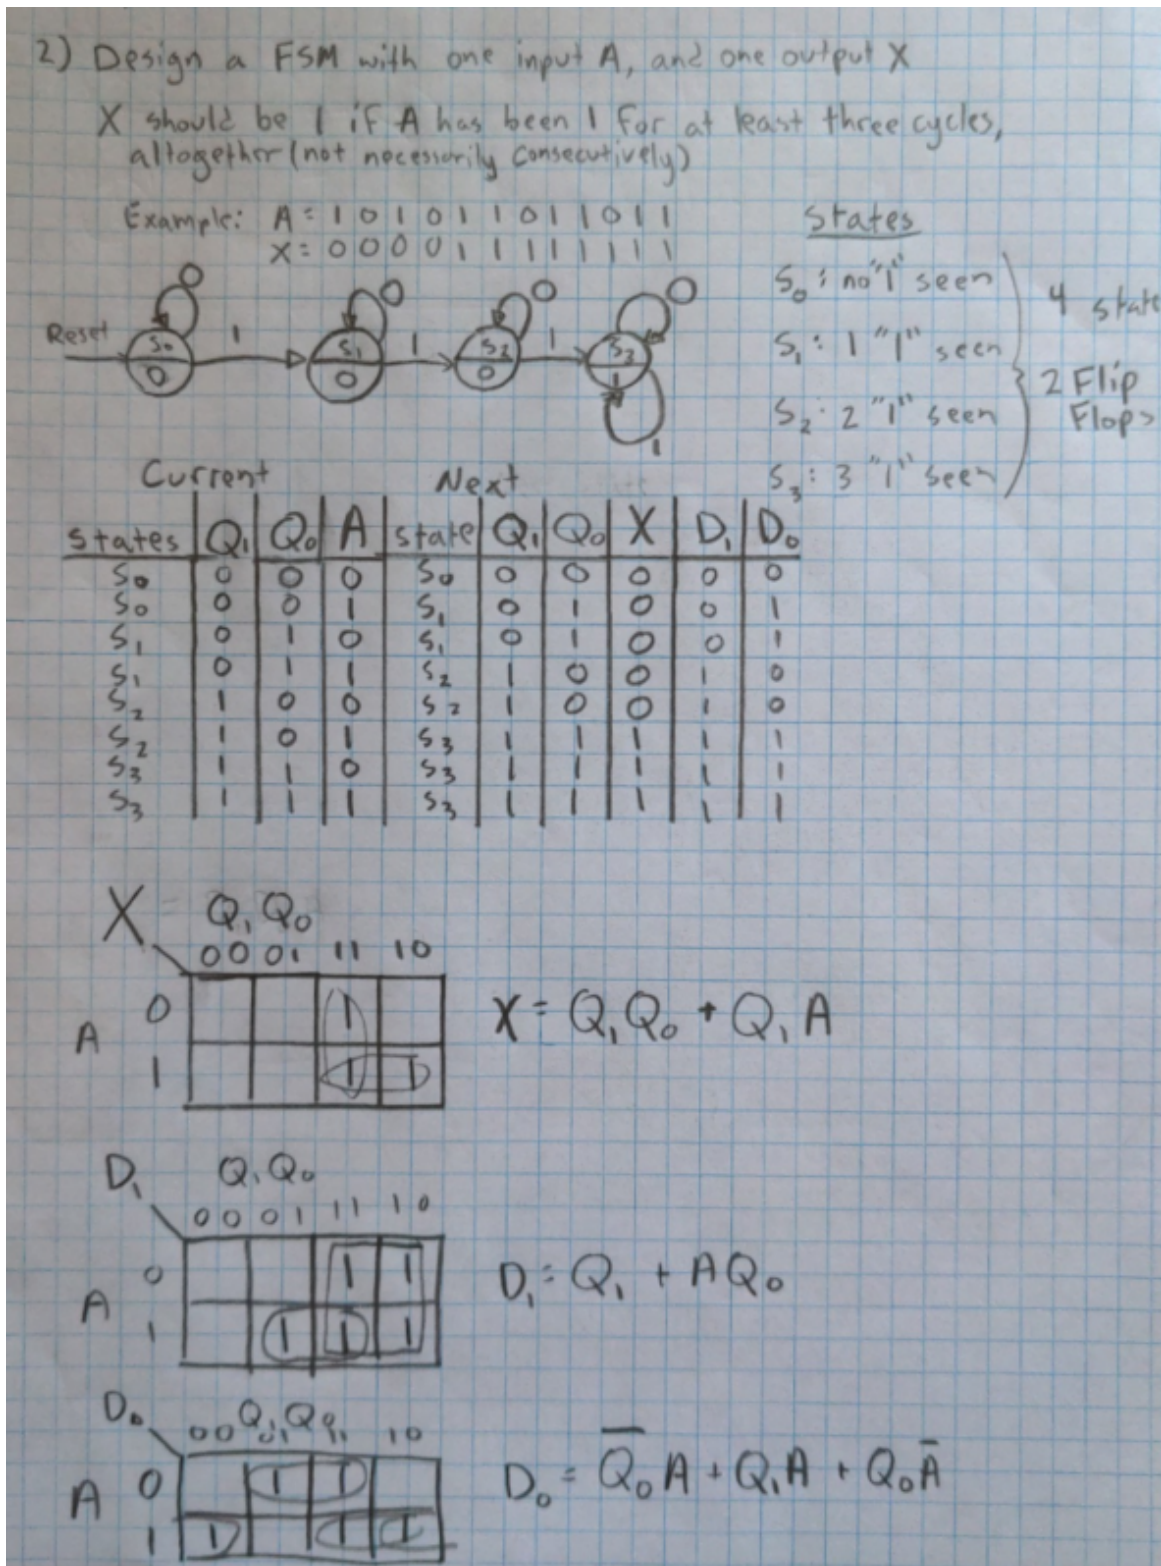 2) Design a FSM with one input A, and one output X
X should be 1 if A has been 1 for at least three cycles,
altogether (not necessarily consecutively)
Example: A = 1 0 1 0 1 1 0 1 1 0 1 1
X = 0 0 0 0 1 1 1 1 1 1 1 1
States
S₀ : no "1" seen
S₁ : 1 "1" seen
S₂ : 2 "1" seen
S₃ : 3 "1" seen
4 state
2 Flip
Flops
0 0 0 0
Reset S₀ 1 S₁ 1 S₂ 1 S₃
0 0 0 1
1
Current Next
states Q₁ Q₀ A state Q₁ Q₀ X D₁ D₀
S₀ 0 0 0 S₀ 0 0 0 0 0
S₀ 0 0 1 S₁ 0 1 0 0 1
S₁ 0 1 0 S₁ 0 1 0 0 1
S₁ 0 1 1 S₂ 1 0 0 1 0
S₂ 1 0 0 S₂ 1 0 0 1 0
S₂ 1 0 1 S₃ 1 1 1 1 1
S₃ 1 1 0 S₃ 1 1 1 1 1
S₃ 1 1 1 S₃ 1 1 1 1 1
X Q₁Q₀
00 01 11 10
0 1
A
1 1 1
X = Q₁Q₀ + Q₁A
D₁ Q₁Q₀
00 01 11 10
0 1 1
A
1 1 1 1
D₁ = Q₁ + AQ₀
D₀ Q₁Q₀
00 01 11 10
A 0 1 1
1 1 1 1
D₀ = Q̅₀A + Q₁A + Q₀A̅